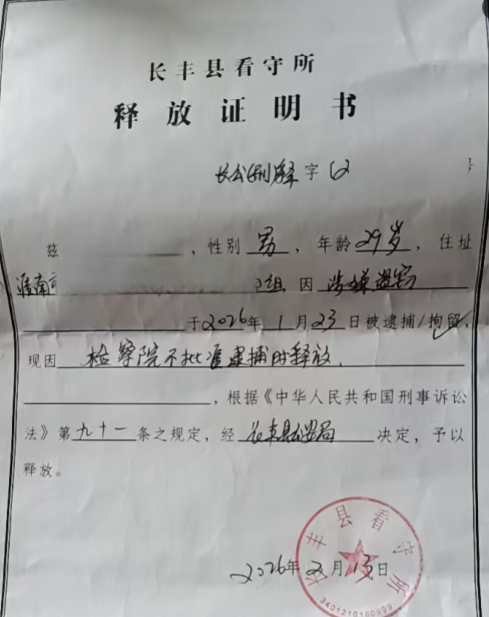 长丰县看守所
释放证明书
长公(刑)释字〔2 号
兹 ，性别 男 ，年龄 29岁 ，住址
淮南市 组 因 涉嫌盗窃
于2026年1月23日被逮捕/拘留，
现因 检察院不批准逮捕时释放，
，根据《中华人民共和国刑事诉讼
法》第九十一条之规定，经长丰县公安局决定，予以
释放。
2026年2月13日
长丰县看守所